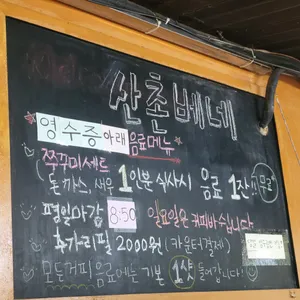 산촌베네
영수증 아래 음료메뉴
(쭈꾸미세트
돈까스 새우 1인분 식사시 음료 1잔!! 무료
평일마감 8:50 일요일은 커피바쉽니다
추가리필 2000원 (카운터결제)
모든커피음료에는 기본 1샷 들어갑니다!